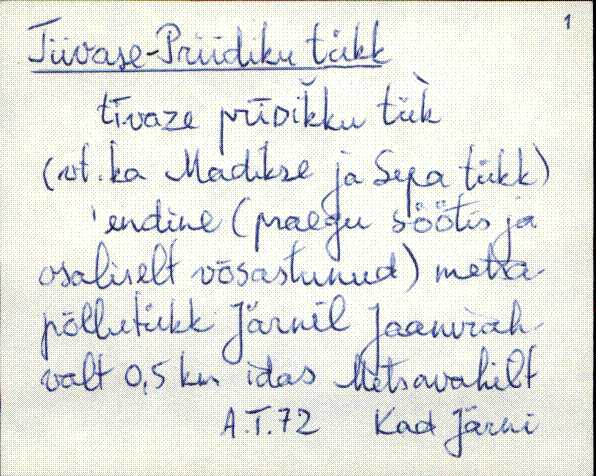 1
Tiivase-Priidiku tükk
tīvaze prīDikku tük̀
(vt. ka Madikse ja Sepa tükk)
'endine (praegu söötis ja
osaliselt võsastunud) metsa
põllutükk Järnil Jaanirah-
valt 0,5 km idas Metsavahilt
A.T.72 Kad Järni